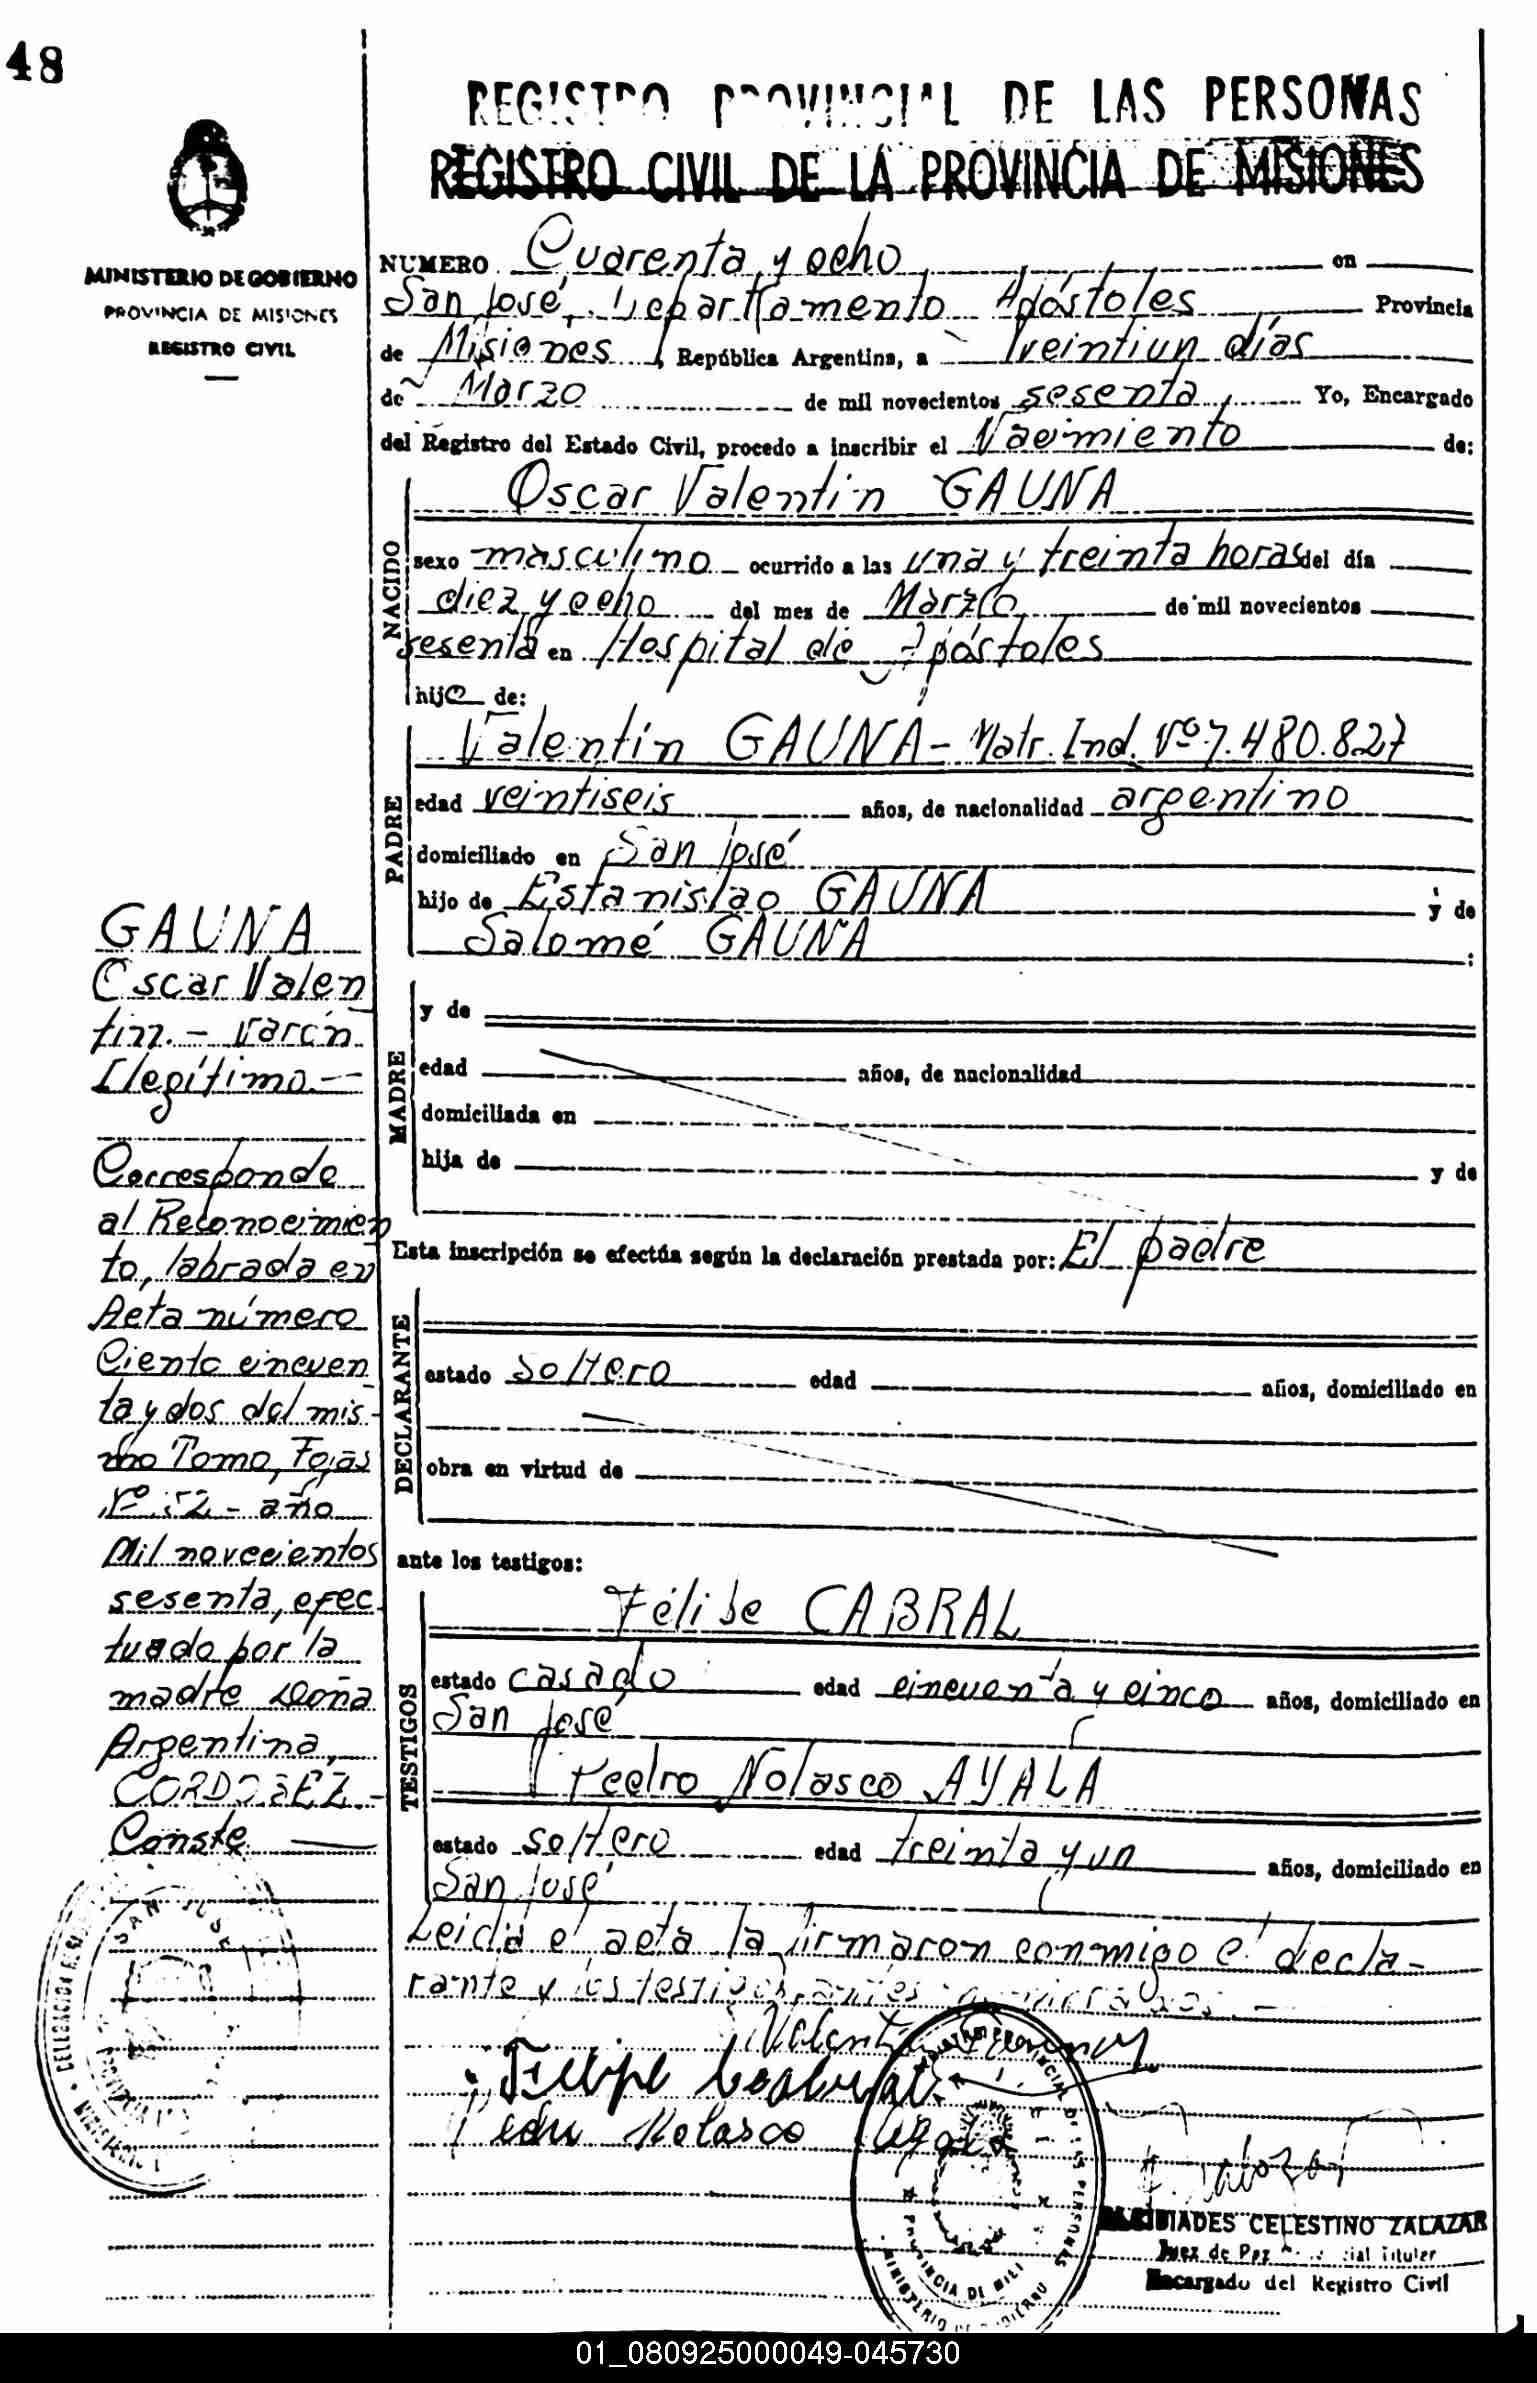 48
REGISTRO PROVINCIAL DE LAS PERSONAS
REGISTRO CIVIL DE LA PROVINCIA DE MISIONES
MINISTERIO DE GOBIERNO
PROVINCIA DE MISIONES
REGISTRO CIVIL
NUMERO Cuarenta y ocho en
San José, Departamento Apóstoles Provincia
de Misiones, República Argentina, a Treintiun días
de Marzo de mil novecientos sesenta, Yo, Encargado
del Registro del Estado Civil, procedo a inscribir el Nacimiento de:
NACIDO
Oscar Valentin GAUNA
sexo masculino ocurrido a las una y treinta horas del día
diez y ocho del mes de Marzo de mil novecientos
sesenta en Hospital de Apóstoles
hijo de:
PADRE
Valentin GAUNA - Matr. Ind. Nº 7.480.827
edad veintiseis años, de nacionalidad argentino
domiciliado en San José
hijo de Estanislao GAUNA y de
Salomé GAUNA :
MADRE
y de
edad años, de nacionalidad
domiciliada en
hija de y de
Esta inscripción se efectúa según la declaración prestada por: El padre
DECLARANTE
estado Soltero edad años, domiciliado en
obra en virtud de
ante los testigos:
TESTIGOS
Félipe CABRAL
estado casado edad cincuenta y cinco años, domiciliado en
San José
Pedro Nolasco AYALA
estado soltero edad treinta y un años, domiciliado en
San José
Leida el acta la firmaron conmigo el decla-
rante y los testigos, antes
Valentin Gauna
Felipe Cabral
Pedro Nolasco Ayala
GAUNA
Oscar Valen
tin.- Varón
Ilegítimo.-
Corresponde
al Reconocimien
to, labrada en
Acta número
Ciento cincuen
ta y dos del mis-
mo Tomo, Fojas
Nº 52 - año
Mil novecientos
sesenta, efec
tuado por la
madre doña
Argentina,
CORDOBEZ.-
Conste
SAN JOSE
REGISTRO PROVINCIAL DE LAS PERSONAS
MINISTERIO DE GOBIERNO
CELESTINO ZALAZAR
Juez de Paz Titular
Encargado del Registro Civil
01_080925000049-045730